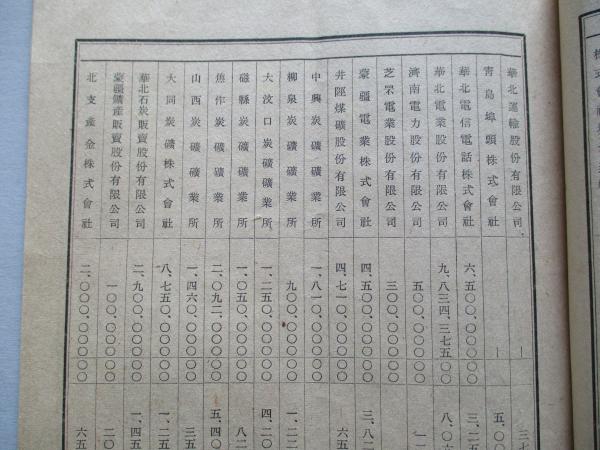 華北運輸股份有限公司 —
青島埠頭株式會社 — 五、〇〇
華北電信電話株式會社 六、五〇〇、〇〇〇、〇〇 三、二五
華北電業股份有限公司 九、八三四、三七五、〇〇 八、〇六
濟南電力股份有限公司 五〇〇、〇〇〇、〇〇
芝罘電業股份有限公司 三〇〇、〇〇〇、〇〇
蒙疆電業株式會社 四、五〇〇、〇〇〇、〇〇 三、八二
井陘煤礦股份有限公司 四、七一〇、〇〇〇、〇〇 六五
中興炭礦礦業所 一、八一〇、〇〇〇、〇〇
柳泉炭礦礦業所 九〇〇、〇〇〇、〇〇 一、二二
大汶口炭礦礦業所 一、二五〇、〇〇〇、〇〇 四、二〇
磁縣炭礦礦業所 一、〇五〇、〇〇〇、〇〇 八二
焦作炭礦礦業所 二、〇九二、〇〇〇、〇〇 五、四〇
山西炭礦礦業所 一、四六〇、〇〇〇、〇〇 三五
大同炭礦株式會社 八、七五〇、〇〇〇、〇〇 一、二五
華北石炭販賣股份有限公司 二、九〇〇、〇〇〇、〇〇 一、四五
蒙疆鑛産販賣股份有限公司 一〇〇、〇〇〇、〇〇 二〇
北支産金株式會社 二、〇〇〇、〇〇〇、〇〇 六五